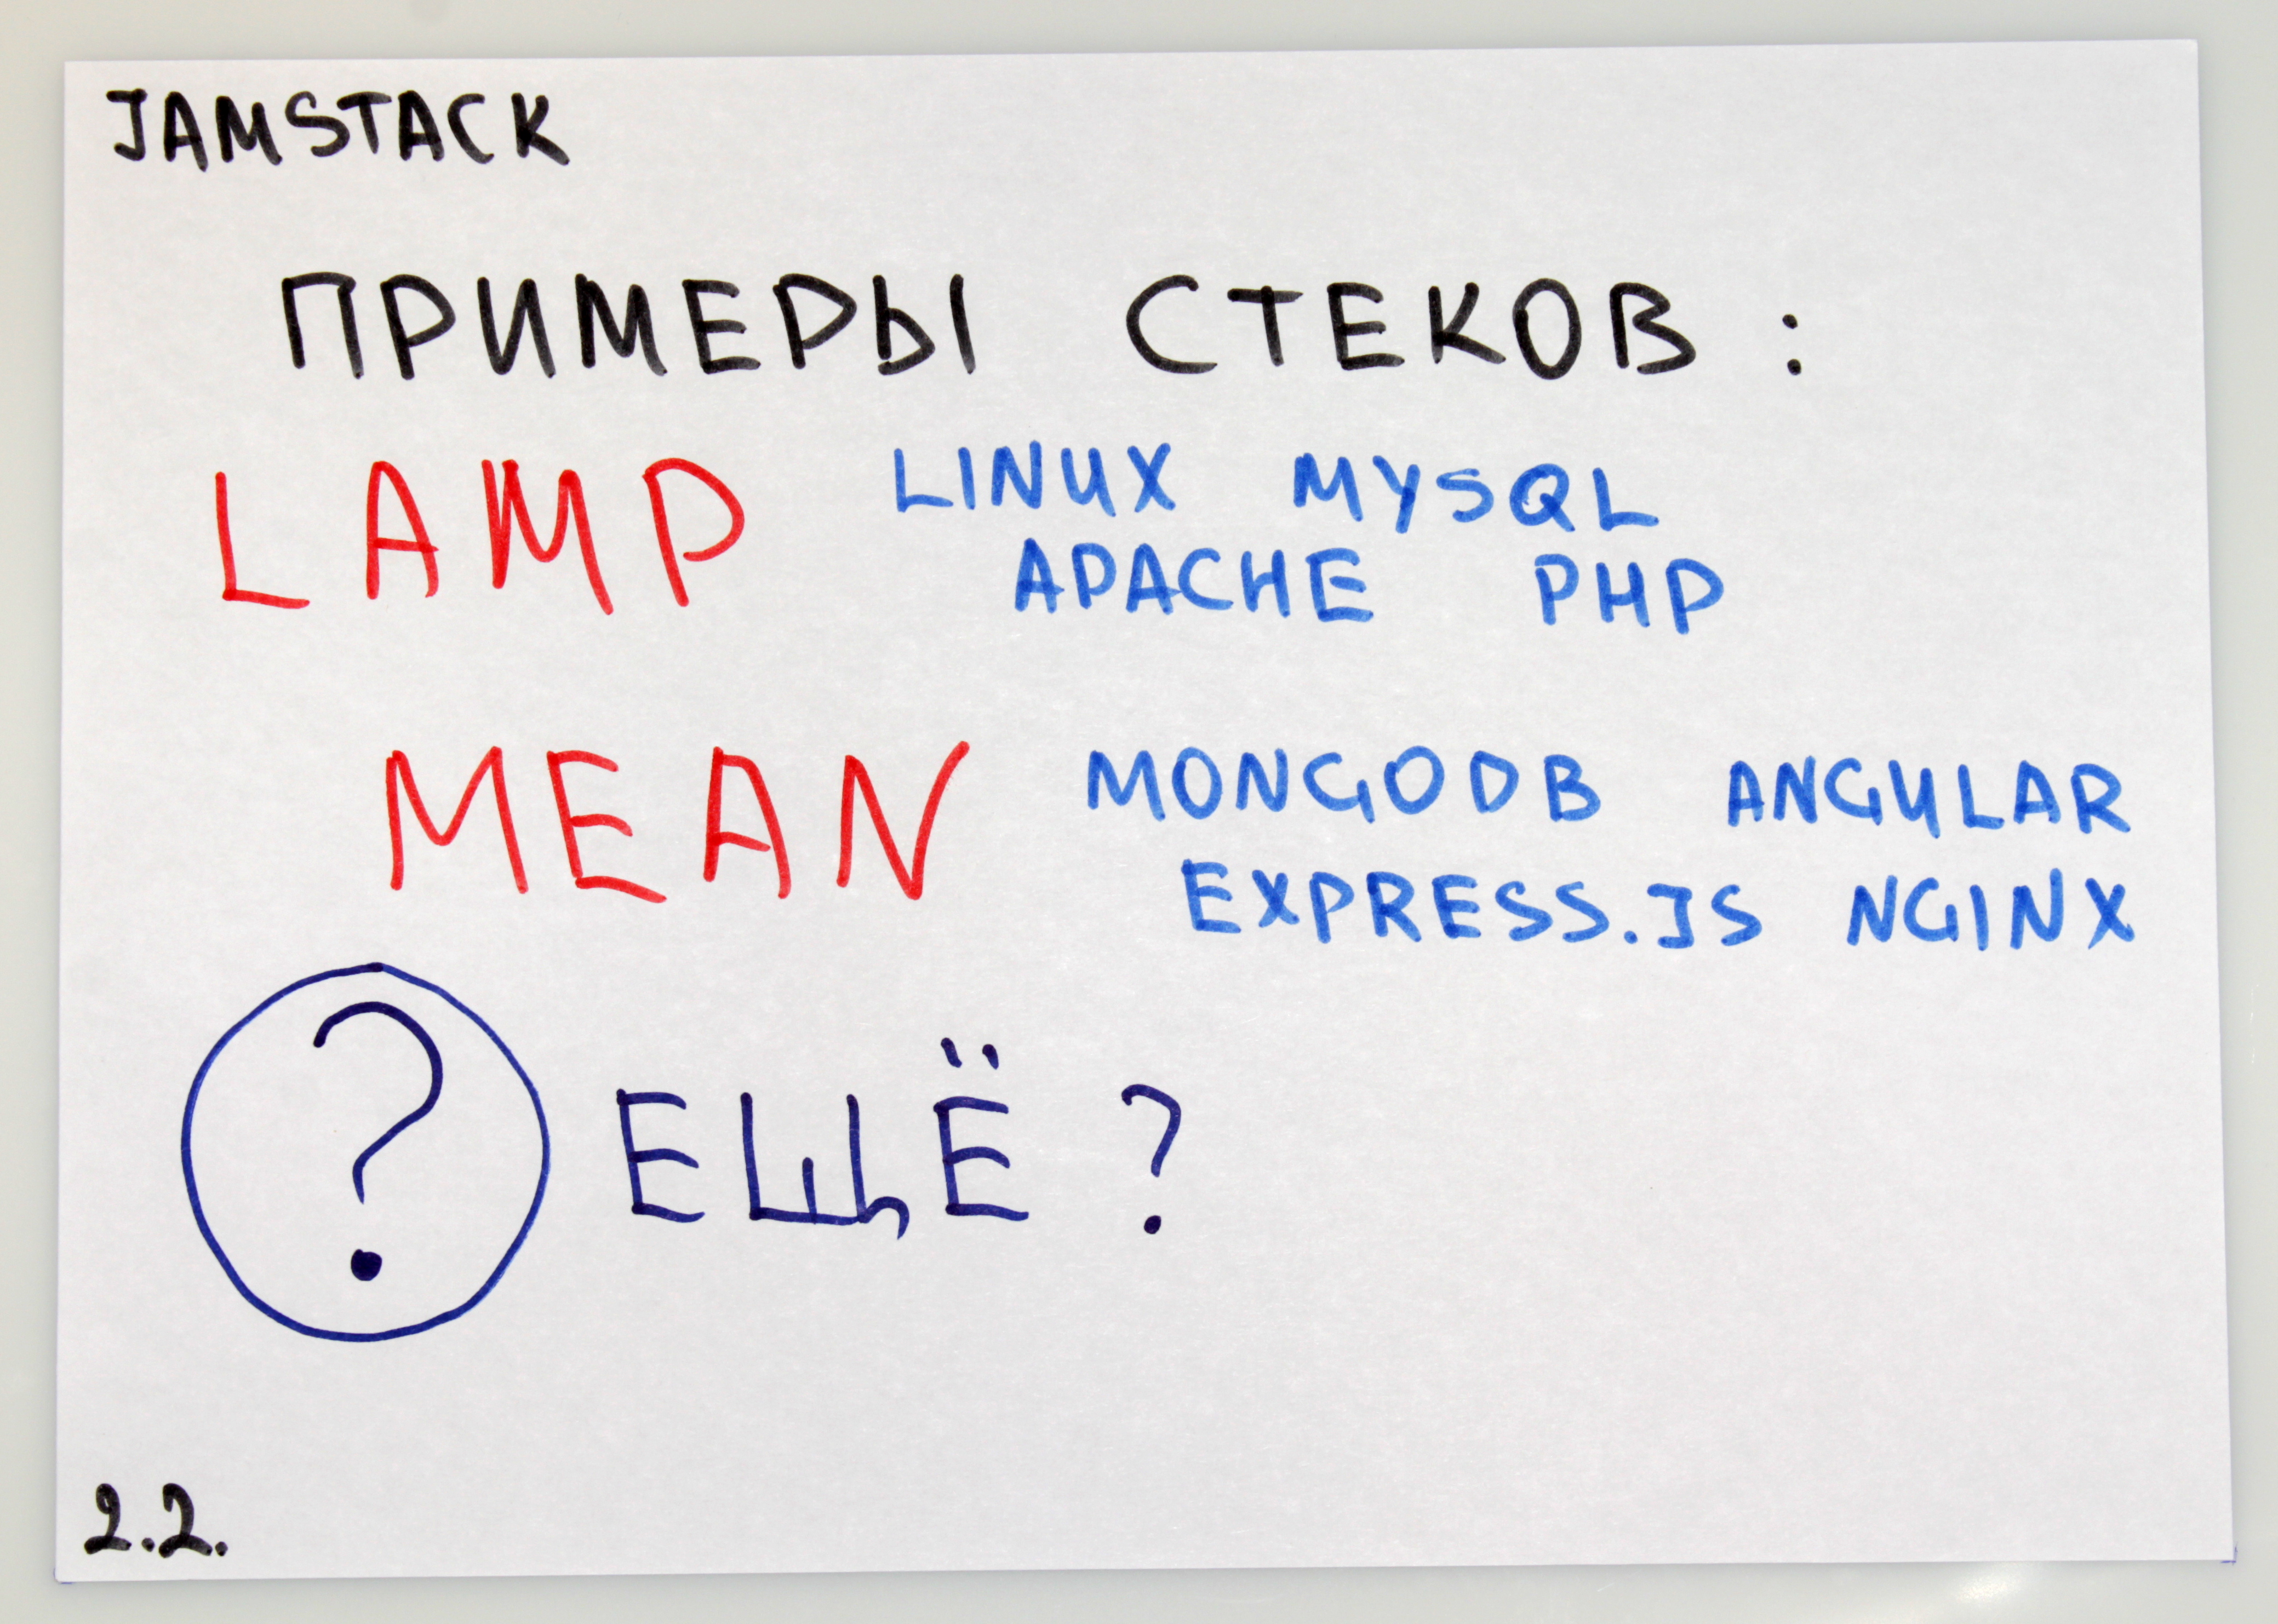 JAMSTACK
ПРИМЕРЫ СТЕКОВ :
LAMP LINUX MYSQL
APACHE PHP
MEAN MONGODB ANGULAR
EXPRESS.JS NGINX
? ЕЩЁ ?
2.2.